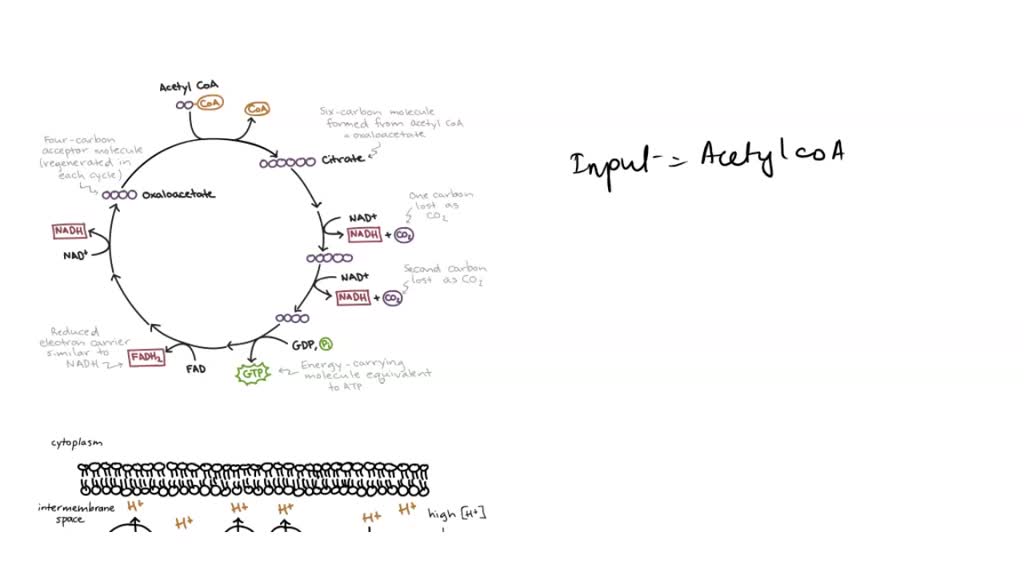 Acetyl CoA
CoA
CoA
Six-carbon molecule
formed from acetyl CoA
+ oxaloacetate
Four-carbon
acceptor molecule
(regenerated in
each cycle)
Citrate
Oxaloacetate
Input = Acetyl CoA
One carbon
lost as
CO2
NAD+
NADH + CO2
NADH
NAD+
Second carbon
lost as CO2
NAD+
NADH + CO2
Reduced
electron carrier
similar to
NADH
FADH2
FAD
GDP, Pi
GTP
Energy-carrying
molecule equivalent
to ATP
cytoplasm
intermembrane
space
H+
H+
H+
H+
H+
H+
high [H+]